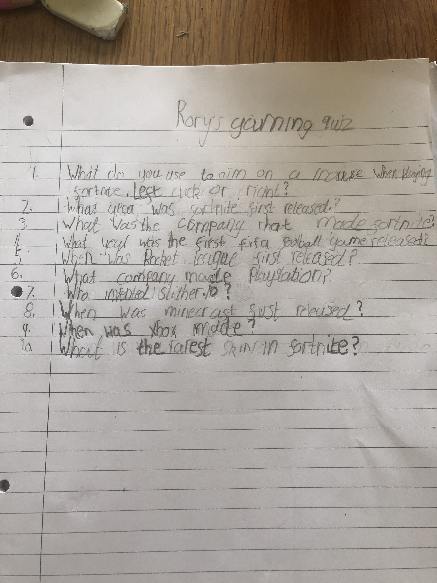 Rory's gaming quiz
1. What do you use to aim on a mouse when playing
fortnite. Left click or right?
2. What year was fortnite first released?
3 What was the company that made fortnite?
4 What year was the first fifa football game released?
5 When was Rocket league first released?
6. What company made Playstation?
7. Who invented slither.io?
8. When was minecraft first released?
9. When was xbox made?
10 What is the rarest skin in fortnite?